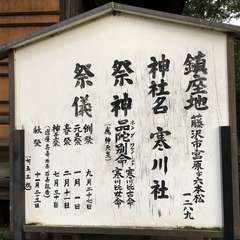 鎮座地 藤沢市宮原字六本松一二六九
神社名 寒川社
祭神 寒川比古命
寒川比女命
品陀別命
(應神天皇)
祭儀 例祭 九月二十七日
元旦祭 一月一日
春祭 二月十一日
七月三十日
社祭 十一月二十三日